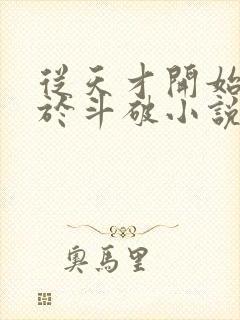 從天才開始
於斗破小說
奧馬里